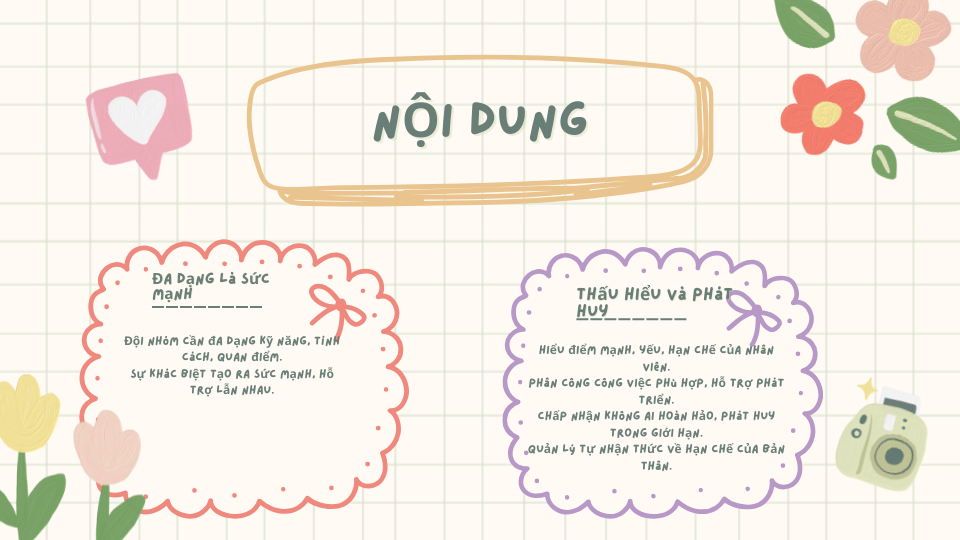 NỘI DUNG
ĐA DẠNG LÀ SỨC
MẠNH
ĐỘI NHÓM CẦN ĐA DẠNG KỸ NĂNG, TÍNH
CÁCH, QUAN ĐIỂM.
SỰ KHÁC BIỆT TẠO RA SỨC MẠNH, HỖ
TRỢ LẪN NHAU.
THẤU HIỂU VÀ PHÁT
HUY
HIỂU ĐIỂM MẠNH, YẾU, HẠN CHẾ CỦA NHÂN
VIÊN.
PHÂN CÔNG CÔNG VIỆC PHÙ HỢP, HỖ TRỢ PHÁT
TRIỂN.
CHẤP NHẬN KHÔNG AI HOÀN HẢO, PHÁT HUY
TRONG GIỚI HẠN.
QUẢN LÝ TỰ NHẬN THỨC VỀ HẠN CHẾ CỦA BẢN
THÂN.